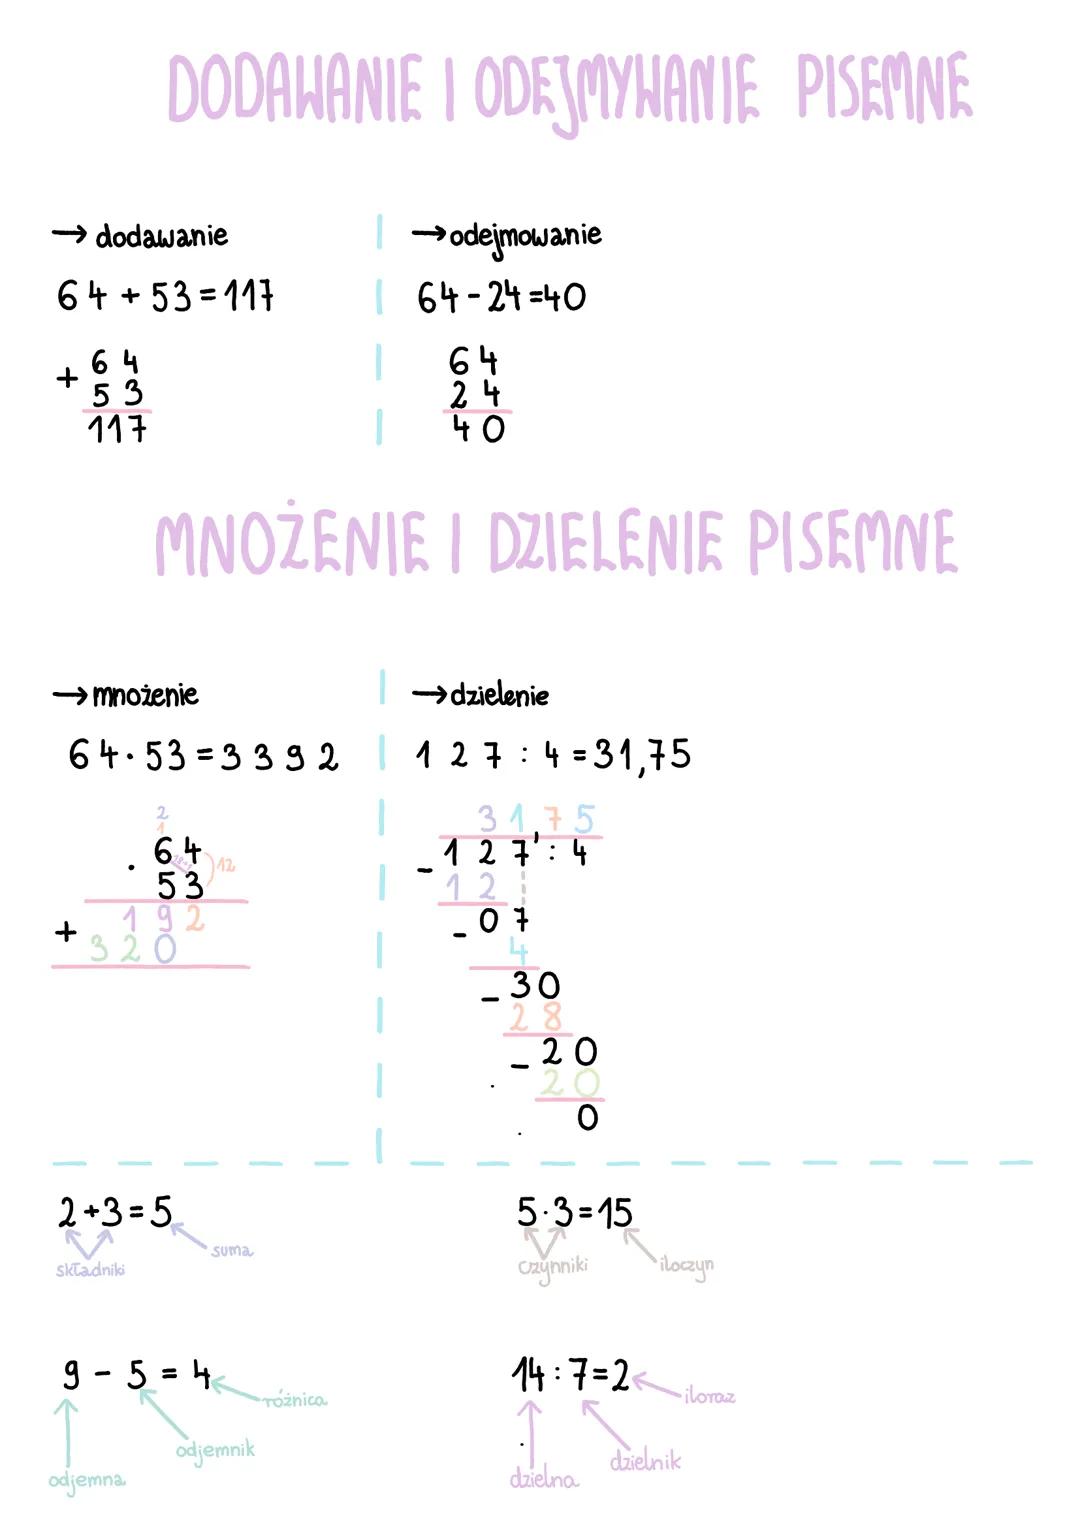 DODAWANIE I ODEJMYWANIE PISEMNE
→ dodawanie
64 + 53 = 117
64
+ 53
117
→ odejmowanie
64 - 24 = 40
64
24
40
MNOŻENIE I DZIELENIE PISEMNE
→ mnożenie
64 · 53 = 3392
2
1
· 64
53
12
192
+ 320
→ dzielenie
127 : 4 = 31,75
3175
- 127' : 4
12
- 07
4
- 30
28
- 20
20
0
2 + 3 = 5
składniki
suma
5 · 3 = 15
czynniki
iloczyn
9 - 5 = 4
różnica
odjemnik
odjemna
14 : 7 = 2
iloraz
dzielnik
dzielna